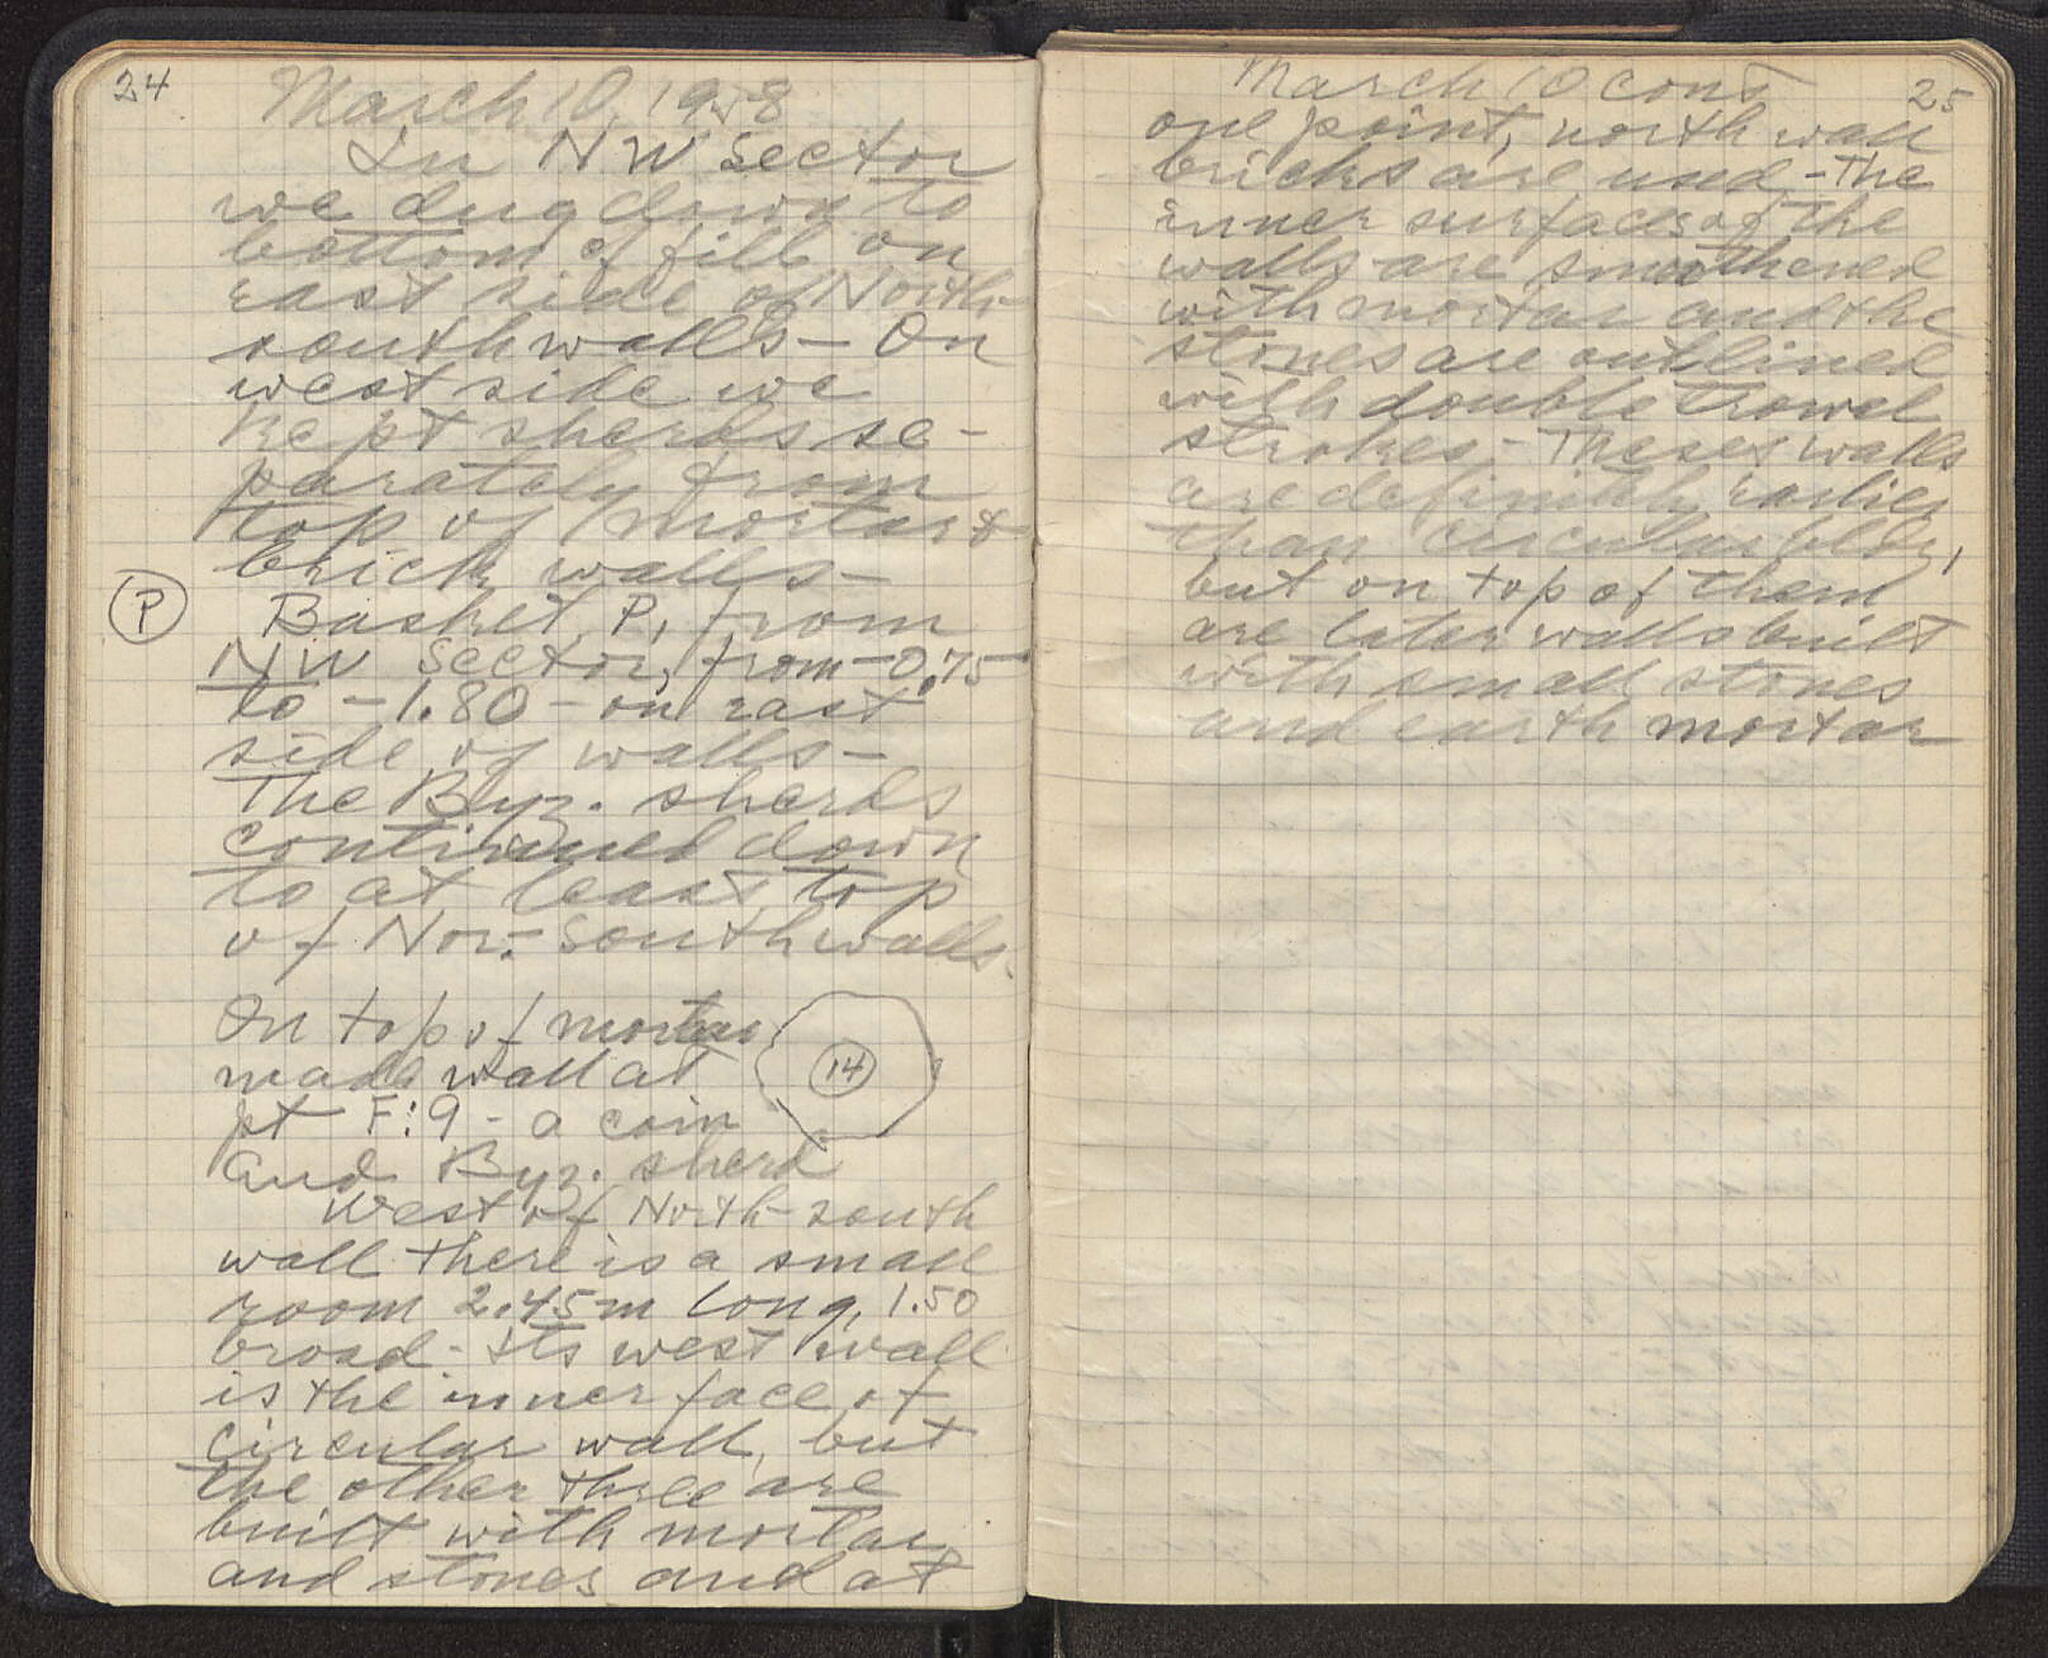 24
March 10, 1958
In NW Sector
we dug down to
bottom of fill on
east side of North-
south walls – On
west side we
kept sherds se-
parately from
top of mortar &
brick walls –
P
Basket P, from
NW Sector, from –0.75
to –1.80 – on east
side of walls –
The Byz. sherds
continued down
to at least top
of Nor.-South walls.
On top of mortar
made wall at
14
pt F:9 - a coin
and Byz. sherd
West of North-south
wall there is a small
room 2.45m long, 1.50
broad - Its west wall
is the inner face of
circular wall, but
the other three are
built with mortar
and stones and at
March 10 cont
25
one point, north wall
bricks are used - The
inner surfaces of the
walls are smoothened
with mortar and the
stones are outlined
with double trowel
strokes - These walls
are definitely earlier
than circular bldg,
but on top of them
are later walls built
with small stones
and earth mortar